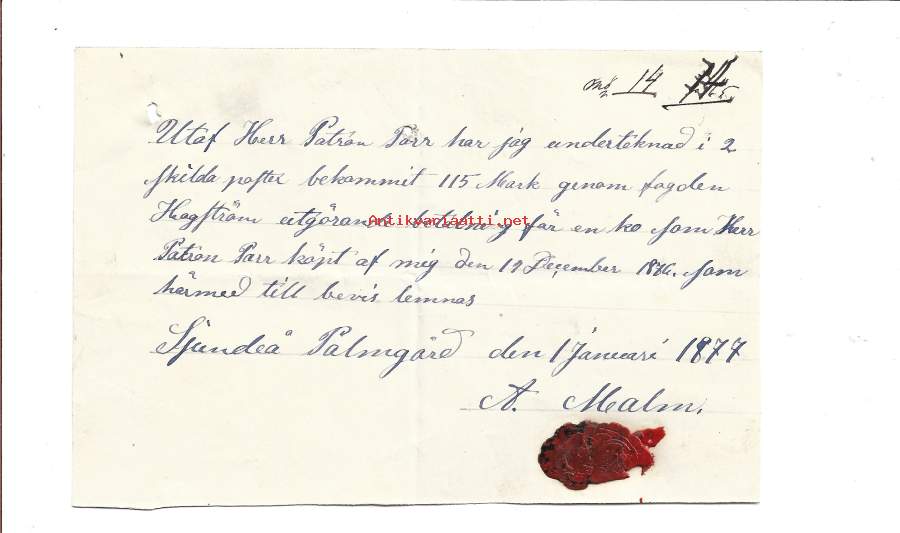 No 14
Utaf Herr Patron Parr har jag undertöknad i 2
skilda poster bekommit 115 Mark genom fogden
Hagström utgörande betalning får en ko som Herr
Antikvariaatti.net
Patron Parr köpt af mig den 19 December 1876. som
härmed till bevis lemnas
Sjundeå Palmgård den 1 Januari 1877
A. Malm.